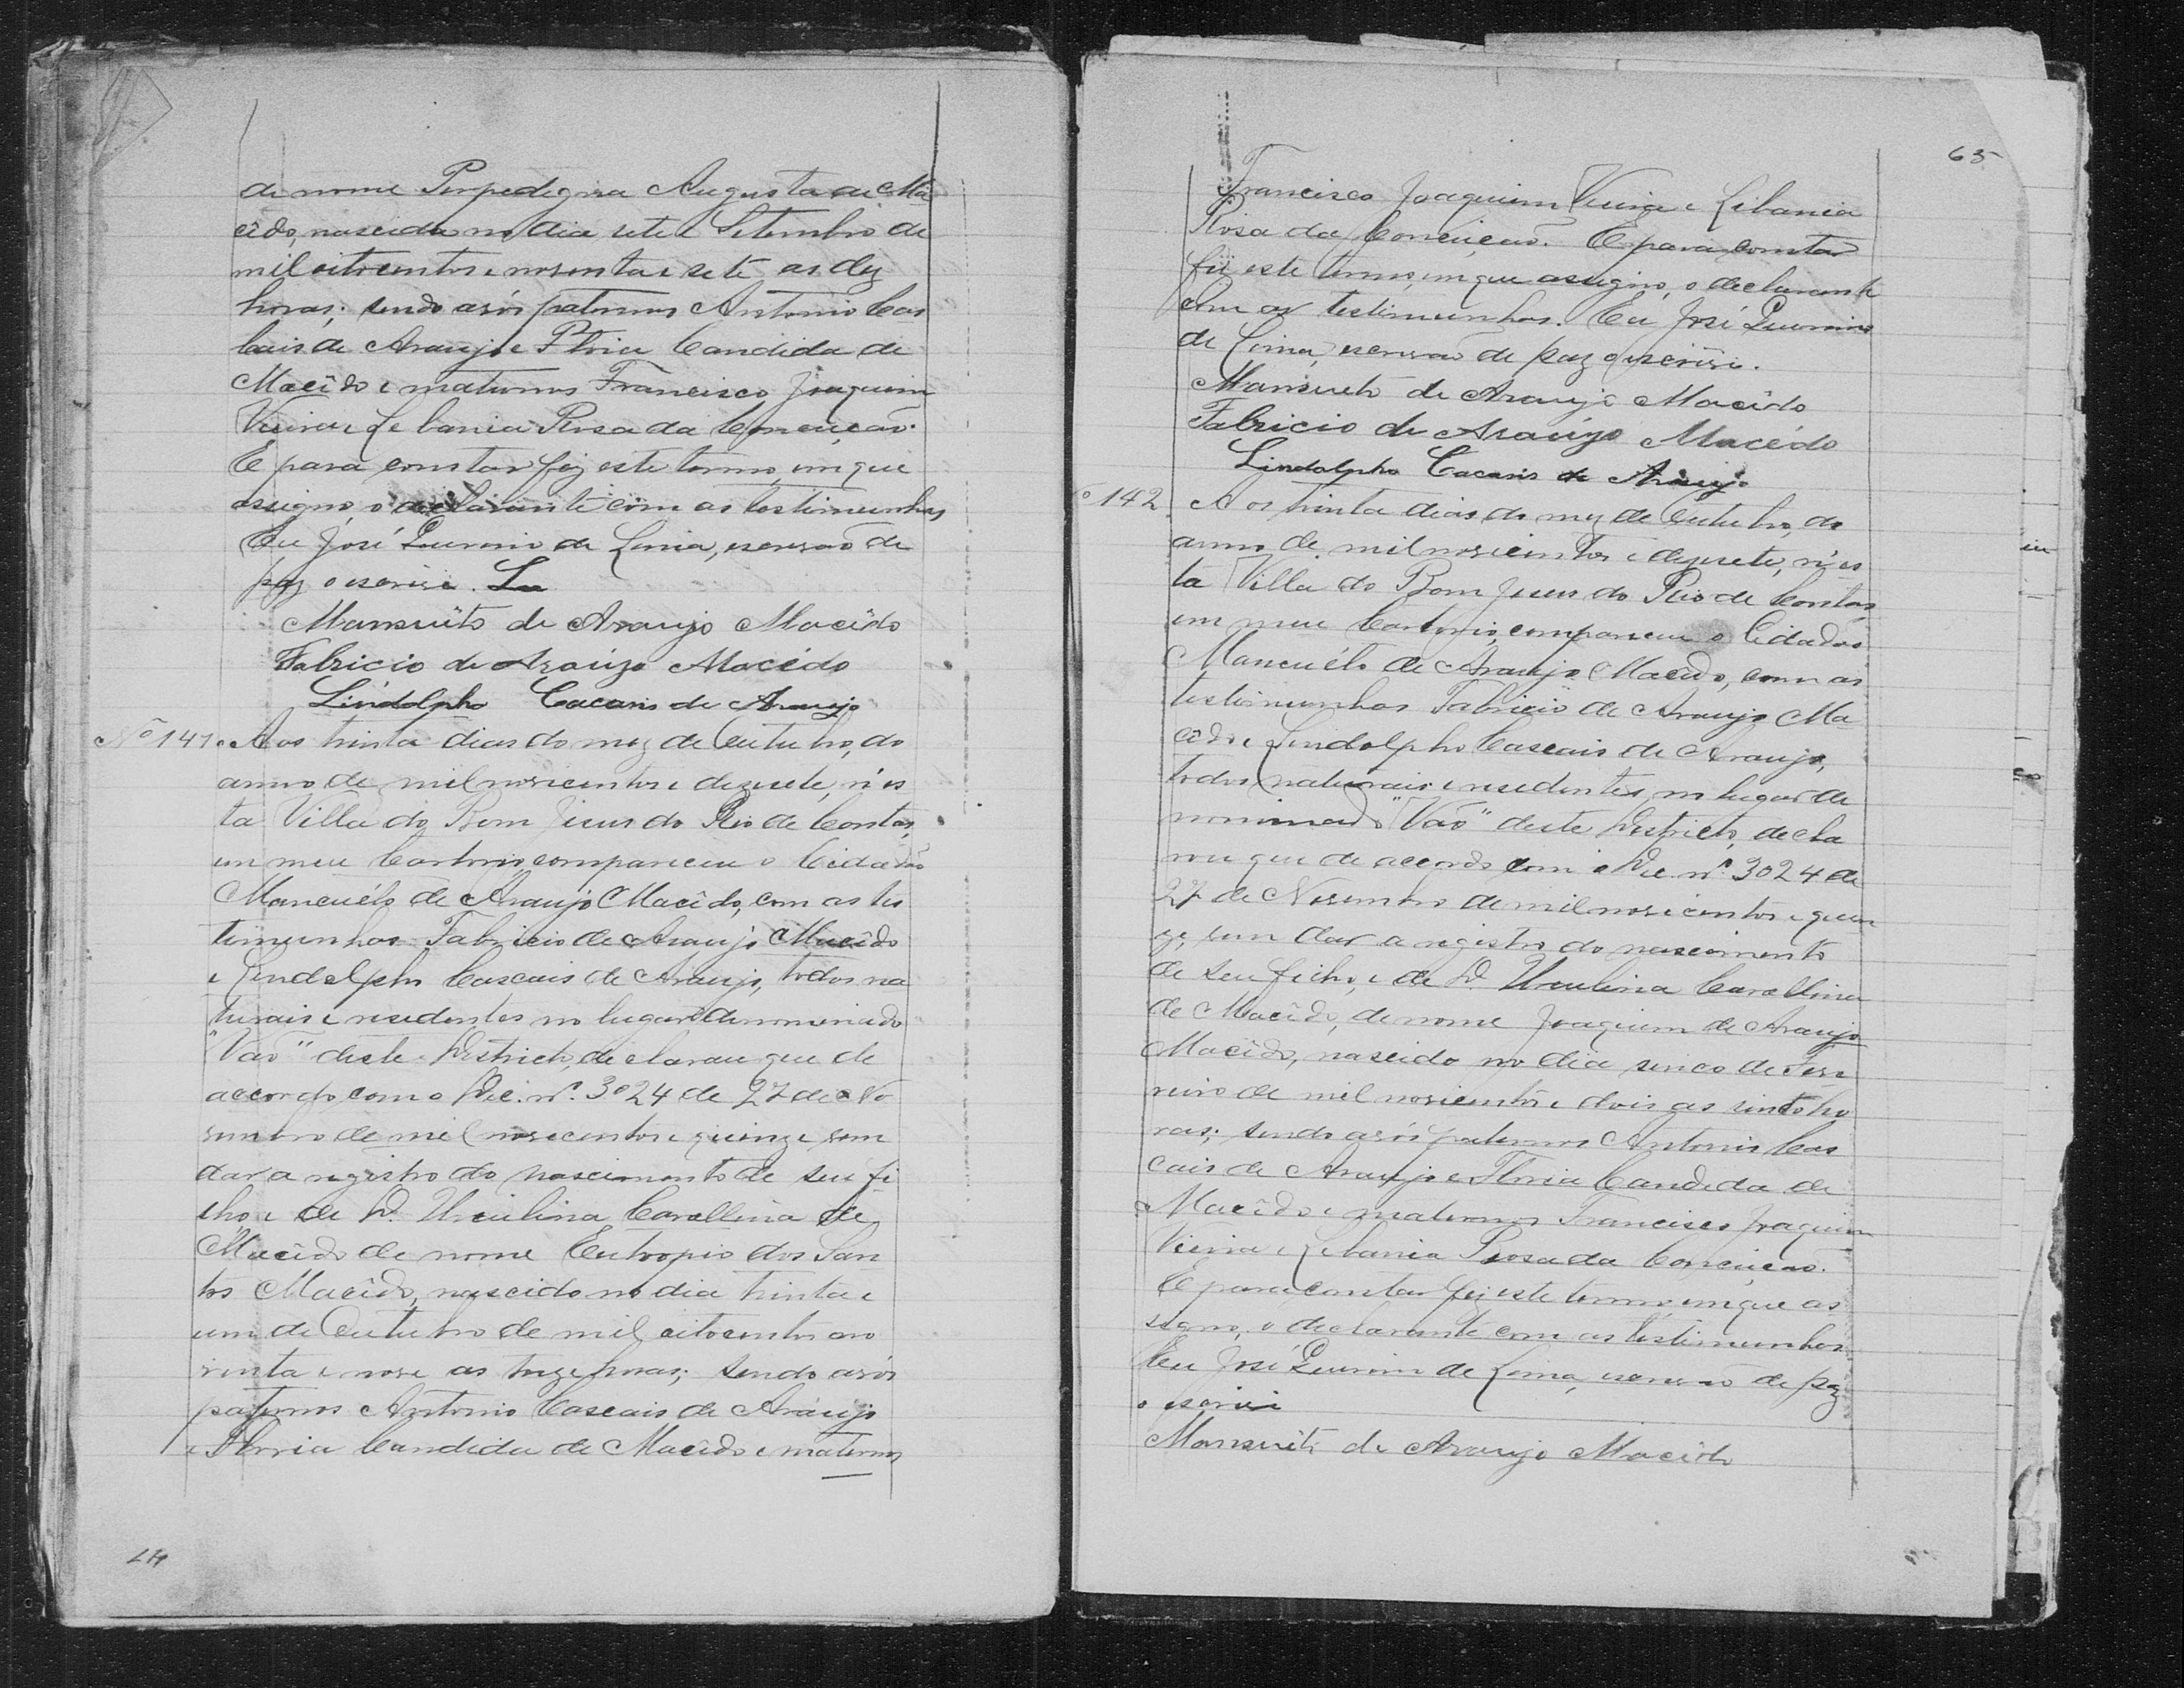 de nome Perpedigna Augusta de Ma
cêdo, nascida no dia sete e Setembro de
mil oitocentos e noventa e sete as dez
horas; sendo avós paternos Antonio Cas
cais de Araujo e Floria Candida de
Macêdo e maternos Francisco Joaquim
Vieira e Lebania Rosa da Conceição.
E para constar fiz este termo, em que
assigno, o declarante com as testimunhas
Eu José Quirino de Lima, escrivaõ de
paz o escrivi.
Mansuêto de Araujo Macêdo
Fabricio de Araújo Macêdo
Lindolpho Cacais de Araujo
Nº 141. Aos trinta dias do mez de Outubro, do
anno de mil novicentos e dezesete, n'es
ta Villa do Bom Jesus do Rio de Contas,
em meu Cartorio, compareceu o Cidadão
Mancuêto de Araujo Macêdo, com as tes
timunhas Fabricio de Araujo Macêdo
e Lindolpho Cascais de Araujo, todos na
turais e residentes no lugar denominado
"Vaõ" deste Districto, declarau que de
accordo com o Dec. nº. 3024 de 27 de No
vembro de mil novicentos e quinze vem
dar a registro do nascimento de seu fi
lho, e de D. Urculina Carollina de
Macêdo de nome Eutropio dos San
tos Macêdo, nascido no dia trinta e
um de Outubro de mil oitocentos no
venta e nove as treze horas; sendo avós
paternos Antonio Cascais de Araujo
e Floria Candida de Macêdo e maternos
LH
65
Francisco Joaquim Vieira e Libania
Rosa da Conceiçaõ. E para constar
fiz este termo, em que assigno, o declarante
com as testimunhas. Eu José Quirino
de Lima, escrivaõ de paz o escrivi.
Mansuêto de Araujo Macêdo
Fabricio de Araújo Macêdo
Lindolpho Cacais de Araujo
º 142 Aos trinta dias do mez de Outubro, do
anno de mil novicentos e dezesete, n'es
ta Villa do Bom Jesus do Rio de Contas,
em meu Cartorio, compareceu o Cidadão
Mancuêto de Araujo Macêdo, com as
testimunhas Fabricio de Araujo Ma
cêdo e Lindolpho Cascais de Araujo,
todos naturais e residentes no lugar de
nominado "Vaõ" deste Districto, decla
rou que de accordo com o Dec. nº. 3024 de
27 de Novembro de mil novicentos e quin
ze, vem dar a registro do nascimento
de seu filho, e de D. Urculina Carollina
de Macêdo, de nome Joaquim de Araujo
Macêdo, nascido no dia sinco de Feve
reiro de mil novicentos e dois as sinco ho
ras; sendo avós paternos Antonio Cas
cais de Araujo e Floria Candida de
Macêdo e maternos Francisco Joaquim
Vieira e Libania Rosa da Conceiçaõ.
E para constar fiz este termo, em que as
signo, o declarante com as testimunhas
Eu José Quirino de Lima, escrivaõ de paz
o escrivi
Mansuêto de Araujo Macêdo